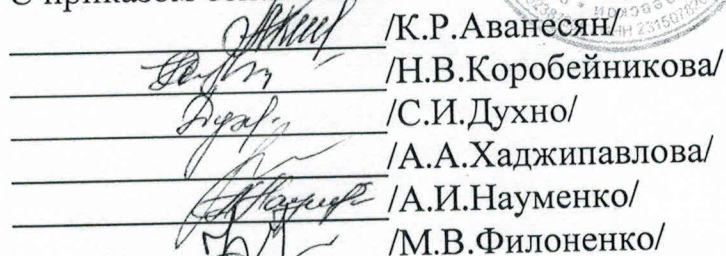 С приказом
/К.Р.Аванесян/
/Н.В.Коробейникова/
/С.И.Духно/
/А.А.Хаджипавлова/
/А.И.Науменко/
/М.В.Филоненко/